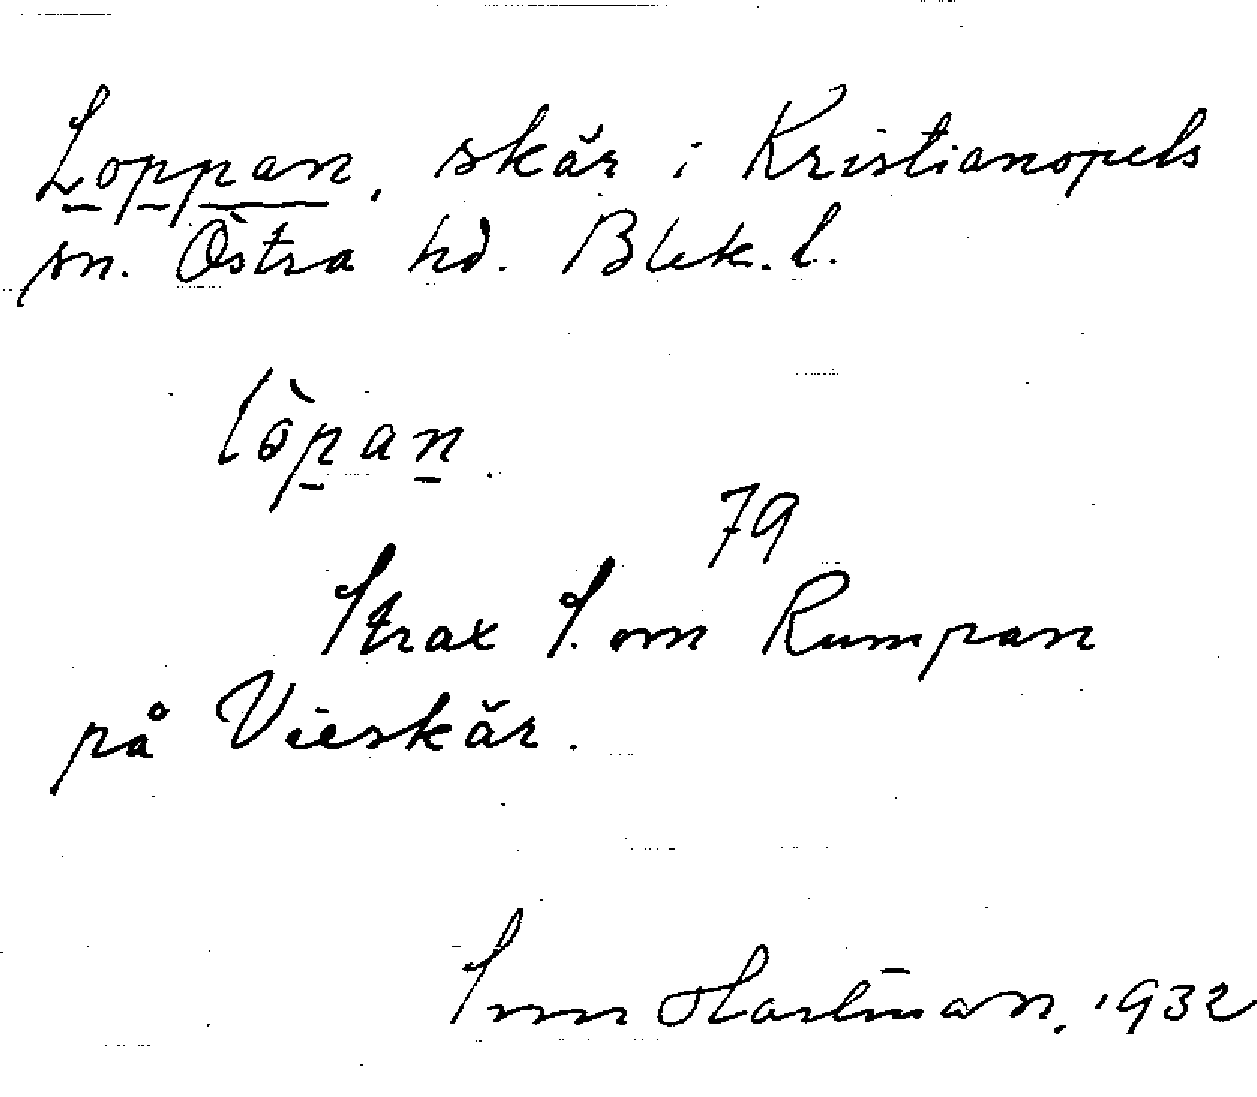 Loppan, skär i Kristianopels
sn. Östra hd. Blek. l.
lòpan.
79
Strax S. om Rumpan
på Vieskär.
Hartman. 1932